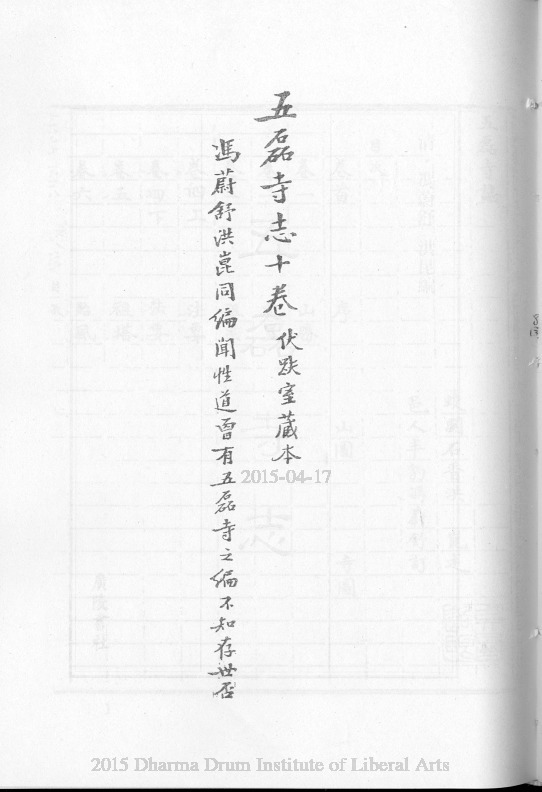 五磊寺志十卷 伏跗室藏本
馮蔚舒洪崑同編聞性道曾有五磊寺之編不知存世否
2015-04-17
2015 Dharma Drum Institute of Liberal Arts